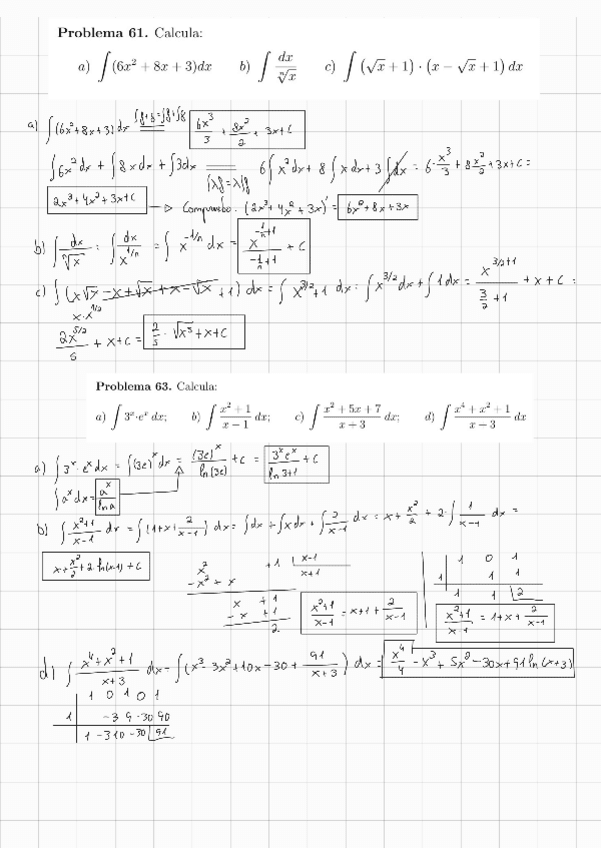 Problema 61. Calcula:
a) ∫(6x² + 8x + 3)dx b) ∫ dx/ⁿ√x c) ∫ (√x + 1) · (x − √x + 1) dx
a) ∫(6x²+8x+3)dx = 6x³/3 + 8x²/2 + 3x+C
∫6x²dx + ∫8xdx + ∫3dx = 6∫x²dx + 8∫xdx + 3∫dx = 6·x³/3 + 8x²/2 + 3x+C =
∫λf = λ∫f
2x³+4x²+3x+C → Compruebo: (2x³+4x²+3x)' = 6x²+8x+3x
b) ∫dx/ⁿ√x = ∫dx/x^(1/n) = ∫x^(-1/n) dx = x^(-1/n+1)/(-1/n+1) + C
c) ∫(x√x -x+√x+x-√x +1) dx = ∫x^(3/2)+1 dx = ∫x^(3/2)dx + ∫1dx = x^(3/2+1)/(3/2+1) + x + C =
x·x^(1/2)
2x^(5/2)/5 + x+C = 2/5 · √x⁵+x+C
Problema 63. Calcula:
a) ∫3ˣ·eˣ dx; b) ∫(x²+1)/(x−1) dx; c) ∫(x²+5x+7)/(x+3) dx; d) ∫(x⁴+x²+1)/(x−3) dx
a) ∫3ˣ·eˣdx = ∫(3e)ˣdx = (3e)ˣ/ln(3e) + C = 3ˣeˣ/(ln3+1) + C
∫aˣdx = aˣ/ln a
b) ∫(x²+1)/(x-1) dx = ∫(1+x+2/(x-1)) dx = ∫dx + ∫xdx + ∫2/(x-1) dx = x + x²/2 + 2·∫1/(x-1) dx =
x+x²/2+2·ln(x-1)+C
x² +1 | x-1
-x²+x x+1
x +1
-x +1
2
(x²+1)/(x-1) = x+1+2/(x-1)
1 0 1
1 | 1 1
1 1 |2
(x²+1)/(x-1) = 1+x+2/(x-1)
d) ∫(x⁴+x²+1)/(x+3) dx = ∫(x³-3x²+10x-30+91/(x+3)) dx = x⁴/4 -x³+5x²-30x+91ln(x+3)
1 0 1 0 1
1 | -3 9 -30 90
1 -3 10 -30 |91